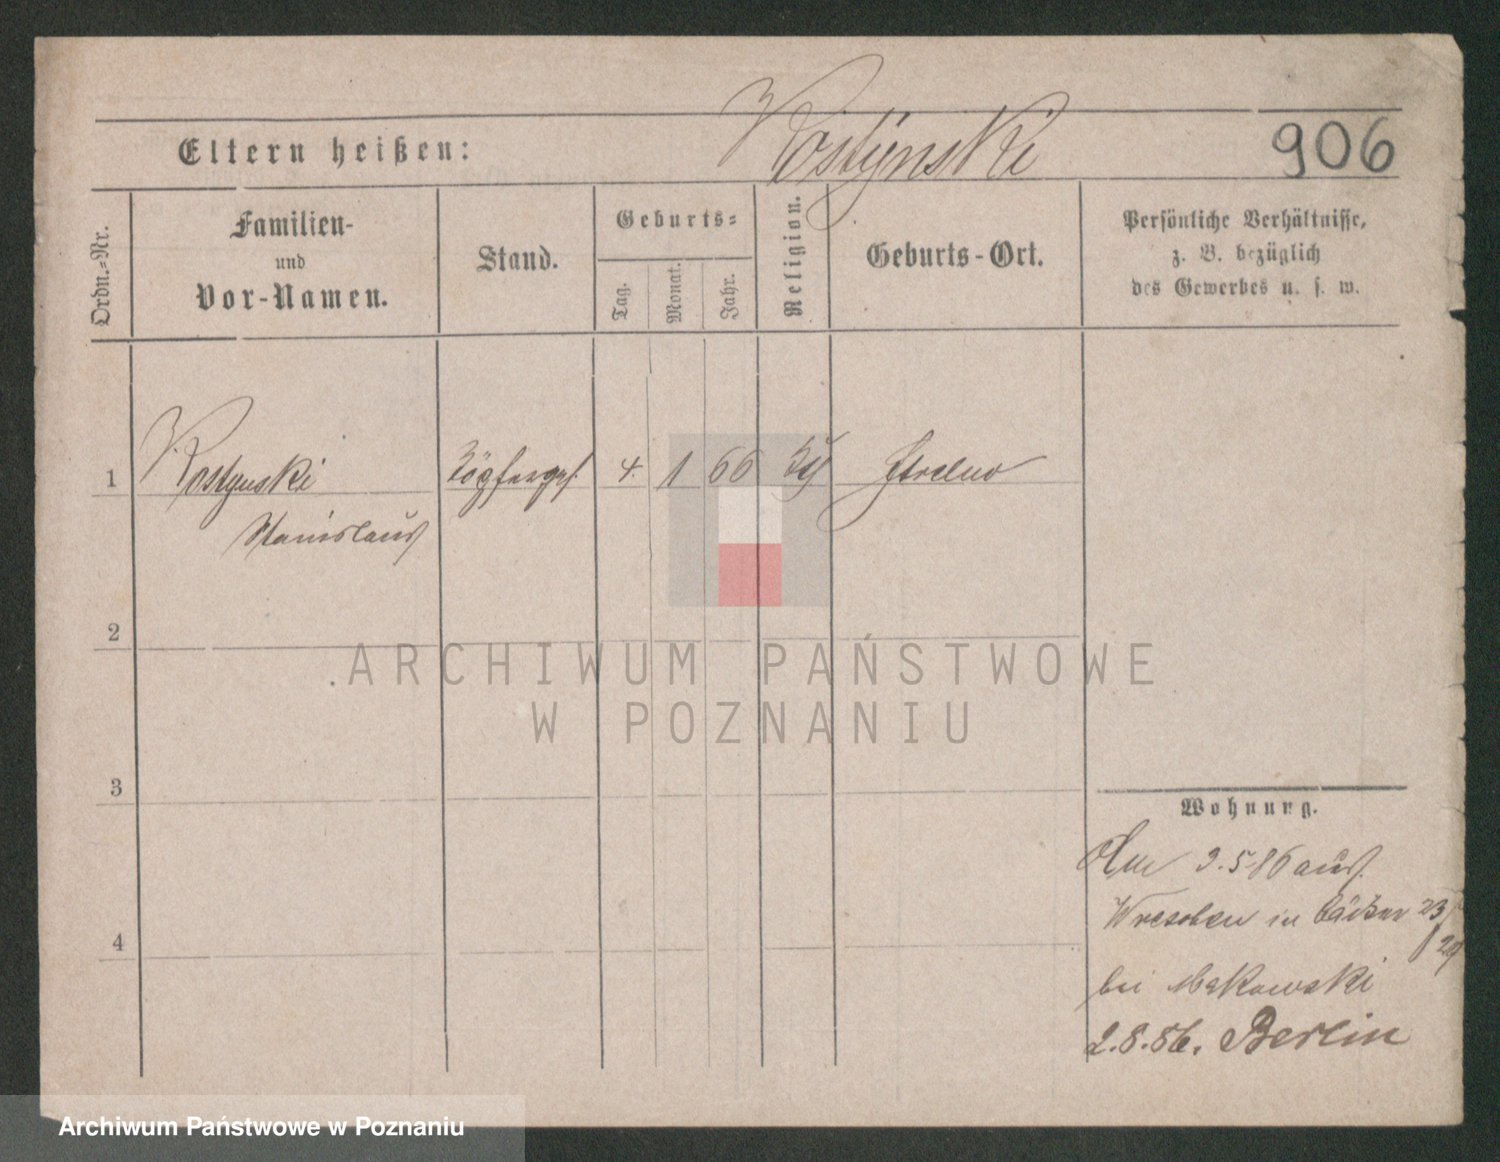 Kostynski
906
Eltern heißen:
Ordn.=Nr.
Familien-
und
Vor-Namen.
Stand.
Geburts=
Tag.
Monat.
Jahr.
Religion.
Geburts-Ort.
Persönliche Verhältnisse,
z. B. bezüglich
des Gewerbes u. s. w.
1 Kostynski Töpferges. 4. 1 66 kth Strelno
Stanislaus
2
3
4
Wohnung.
Am 3.5.86 aus
Wreschen in 23
bei Makowski
2.8.86. Berlin
ARCHIWUM PAŃSTWOWE
W POZNANIU
Archiwum Państwowe w Poznaniu